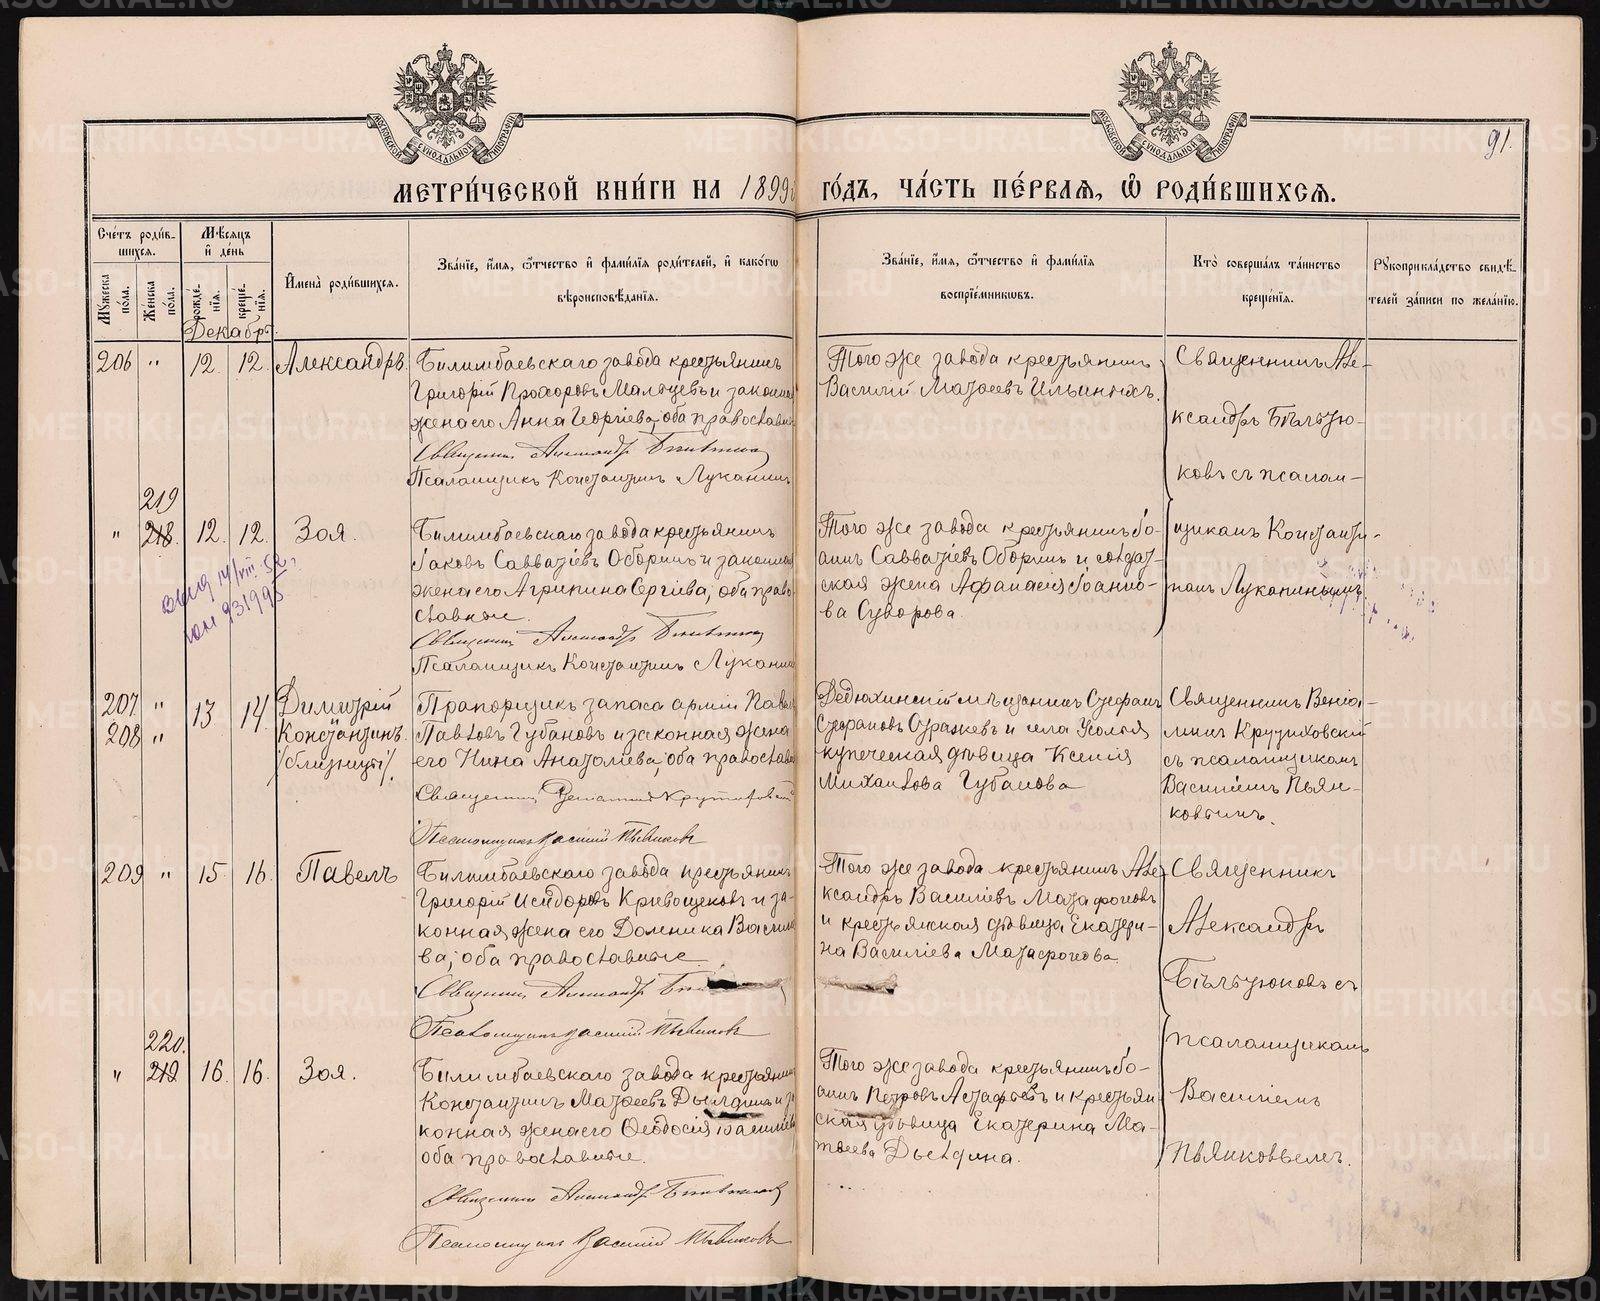 МОСКОВСКОЙ СѴНОДАЛЬНОЙ ТИПОГРАФІИ
МОСКОВСКОЙ СѴНОДАЛЬНОЙ ТИПОГРАФІИ
91.
МЕТРИ́ЧЕСКОЙ КНИ́ГИ НА 1899 ГО́ДЪ, ЧА́СТЬ ПЕ́РВАЯ, Ѽ РОДИ́ВШИХСѦ.
Сче́тъ роди́в-
шихсѧ.
Мꙋ́жеска по́ла.
Же́нска по́ла.
Мѣ́сѧцъ и҆ де́нь
рожде́-нїѧ.
креще́-нїѧ.
И҆мена̀ роди́вшихсѧ.
Зва́нїе, и҆́мѧ, ѻ҆́тчество и҆ фами́лїѧ роди́телей, и҆ како́гѡ
вѣроисповѣ́данїѧ.
Зва́нїе, и҆́мѧ, ѻ҆́тчество и҆ фами́лїѧ
воспрїе́мникѡвъ.
Кто̀ соверша́лъ та́инство
креще́нїѧ.
Рꙋкоприкла́дство свидѣ́-
телей за́писи по жела́нїю.
Декабрь
206 " 12. 12. Александръ.
Билимбаевскаго завода крестьянинъ
Григорій Прохоровъ Мальцевъ и законная
жена его Анна Георгіева, оба православные
Священникъ Александръ
Псаломщикъ Константинъ Луканинъ
Того же завода крестьянинъ
Василій Матѳеевъ Ильиныхъ.
Священникъ Але-
ксандръ Бѣльтю-
ковъ съ псалом-
щикомъ Константи-
номъ Луканинымъ
219
" 218. 12. 12. Зоя.
Билимбаевскаго завода крестьянинъ
Іаковъ Савватіевъ Оборинъ и законная
жена его Агрипина Сергіева, оба право-
славные.
Священникъ Александръ
Псаломщикъ Константинъ Луканинъ
Того же завода крестьянинъ Іо-
аннъ Савватіевъ Оборинъ и солдат-
ская жена Афанасія Іоанно-
ва Суворова.
14/VIII-52.
931995
207 " 13 14. Димитрій
208 " Константинъ.
/близнецы/.
Прапорщикъ запаса арміи Павелъ
Павловъ Губановъ и законная жена
его Нина Анатоліева, оба православные
Священникъ Веніаминъ Крутиховскій
Псаломщикъ Василій Пьянковъ
Дедюхинскій мѣщанинъ Стефанъ
Стефановъ Стражевъ и села Усолья
купеческая дѣвица Ксенія
Михайлова Губанова
Священникъ Веніа-
минъ Крутиховскій
съ псаломщикомъ
Василіемъ Пьян-
ковымъ.
209 " 15. 16. Павелъ
Билимбаевскаго завода крестьянинъ
Григорій Исидоровъ Кривощековъ и за-
конная жена его Домника Василіе-
ва, оба православные
Священникъ Александръ
Псаломщикъ Василій Пьянковъ
Того же завода крестьянинъ Але-
ксандръ Василіевъ Матафоновъ
и крестьянская дѣвица Екатери-
на Василіева Матафонова.
Священникъ
Александръ
Бѣльтюковъ съ
псаломщикомъ
Василіемъ
Пьянковымъ.
220.
" 219 16. 16. Зоя.
Билимбаевскаго завода крестьянинъ
Константинъ Матѳеевъ Дылдинъ и за-
конная жена его Ѳеодосія
оба православные.
Священникъ Александръ
Псаломщикъ Василій Пьянковъ
Того же завода крестьянинъ Іо-
аннъ Петровъ Астафьевъ и крестьян-
ская дѣвица Екатерина Ма-
твеева Дылдина.
METRIKI.GASO-URAL.RU